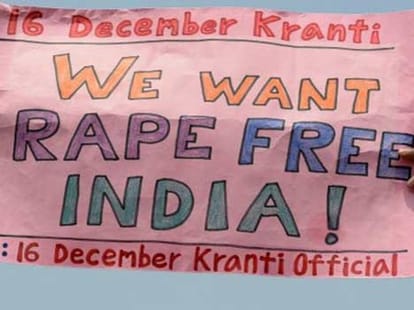 16 December Kranti
WE WANT
RAPE FREE
INDIA!
: 16 December Kranti Official